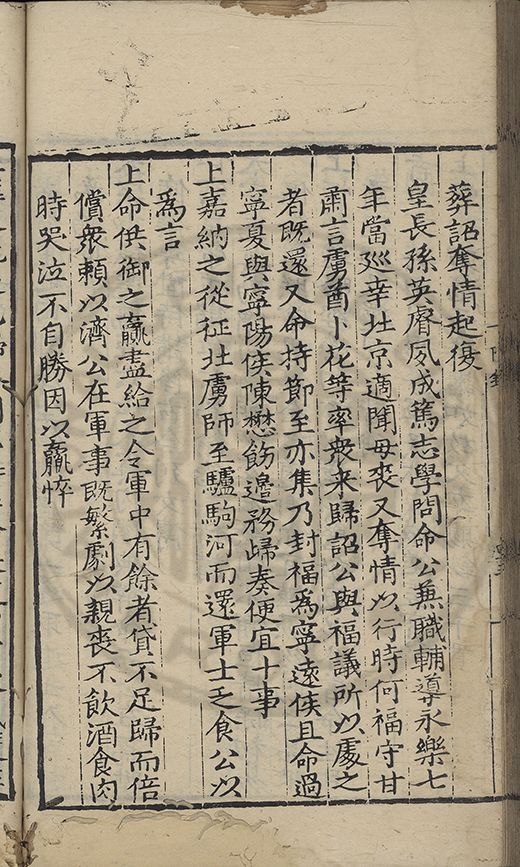 葬詔奪情起復
皇長孫英睿夙成篤志學問命公兼職輔導永樂七
年當廵幸北京適聞母喪又奪情以行時何福守甘
肅言虜酋卜花等率衆来歸詔公與福議所以處之
者既還又命持節至亦集乃封福為寧遠侯且命過
寧夏與寧陽侯陳懋飭邉務歸奏便宜十事
上嘉納之從征北虜師至驢駒河而還軍士乏食公以
為言
上命供御之羸盡給之令軍中有餘者貸不足歸而倍
償衆頼以濟公在軍事既繁劇以親喪不飲酒食肉
時哭泣不自勝因以羸悴